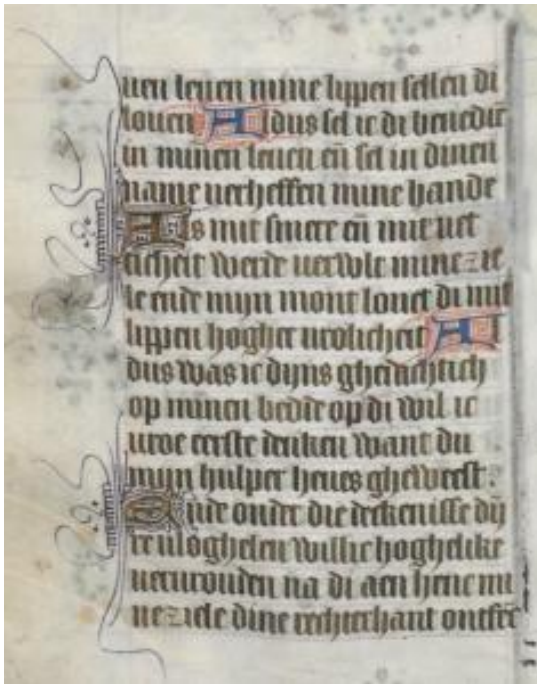 uen leuen mine lippen sellen di
louen Aldus sel ic di benediē
in minen leuen eñ sel in dinen
name verheffen mine hande
Als mit smere eñ mit vet
ticheit werde vervolt mine zie
le ende mijn mont louet di mit
lippen hogher vrolicheit Al
dus was ic dijns ghedachtich
op minen bedde op di wil ic
vroe eerste denken want du
mijn hulper heues gheweest.
Ende onder die deckenisse dij
re vloghelen willic hoghelike
vervrouden na di aen heue mi
ne ziele dine rechterhant ontfēc